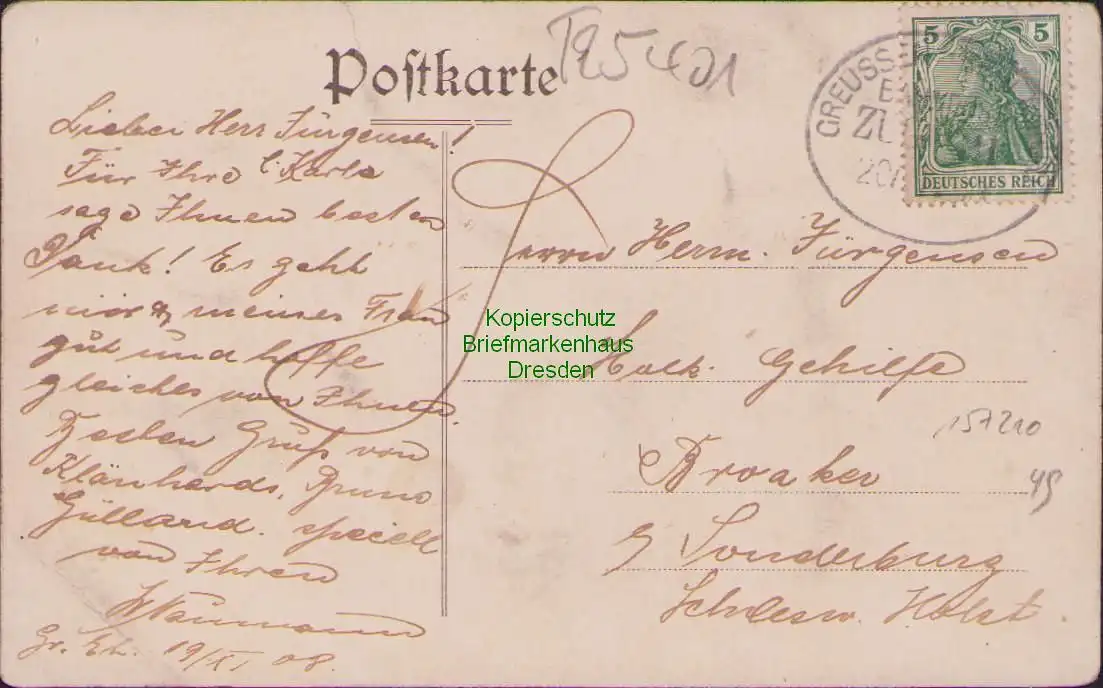 Postkarte
T25401
Lieber Herr Jürgensen!
Für Ihre l. Karte
sage Ihnen besten
Dank! Es geht
mir & meiner Frau
gut und hoffe
gleiches von Ihnen.
Besten Gruß von
Klänhards, Bruno
Gülland. speciell
von Ihren
Naumann
Gr. Eh. 19/XI 08.
GREUSS
ZU
20
5 5
DEUTSCHES REICH
Herrn Herm. Jürgensen
Molk. Gehilfe
Broaker
b/ Sonderburg
Schlesw. Holst.
157210
45
Kopierschutz
Briefmarkenhaus
Dresden